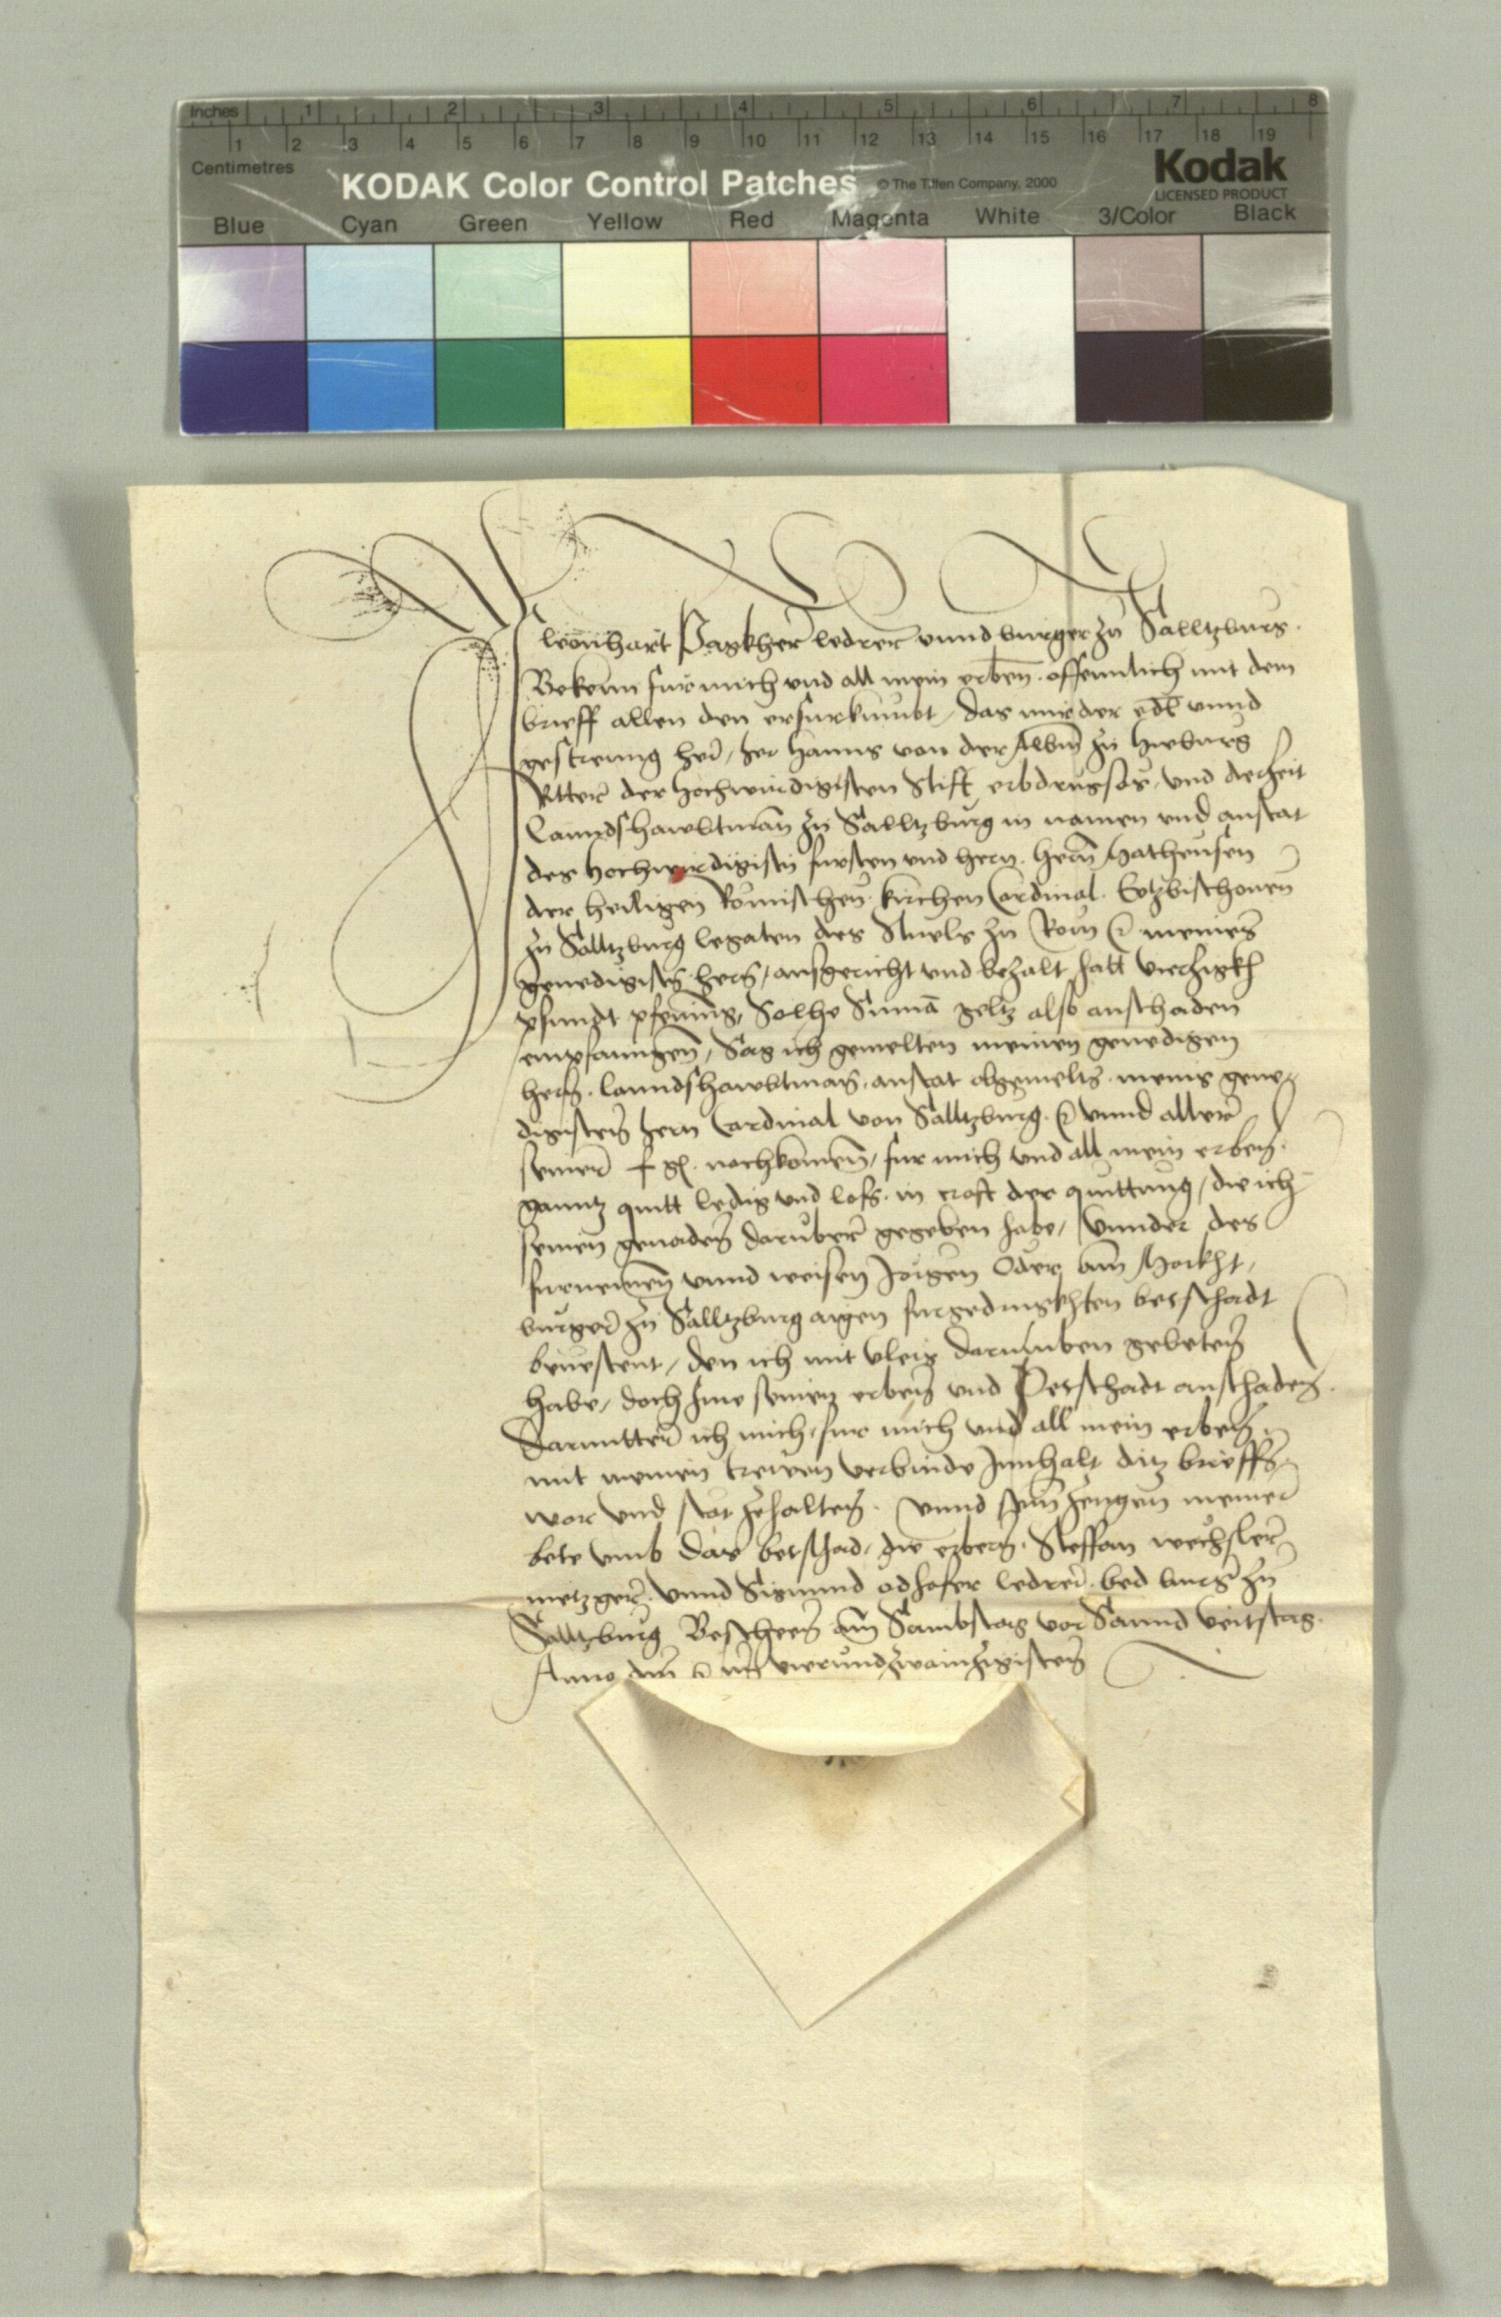 Inches 1 2 3 4 5 6 7 8
1 2 3 4 5 6 7 8 9 10 11 12 13 14 15 16 17 18 19
Centimetres
KODAK Color Control Patches © The Tiffen Company, 2000 Kodak
LICENSED PRODUCT
Blue Cyan Green Yellow Red Magenta White 3/Color Black
leonhart ledrer vnnd burger zu Salltzburg.
Bekenn fur mich vnd all mein erben offennlich mit dem
brieff allen den das mir der edl vnnd
gestreng her, her Hanns von der Albm zu Hieburg
Ritter der hochwirdigisten Stift erbdrugsas, vnd derzeit
Lanndshawbtman zu Salltzburg in namen vnd anstat
des hochwirdigistn fursten vnd hern. hern Matheusen
der heiligen Romischen kirchen Cardinal. Ertzbischouen
zu Salltzburg legaten des Stuels zu Rom meines
genedigistn hern, ausgericht vnd bezalt hatt vierzigkh
pfundt pfening, Solhe Suma geltz also anschaden
empfanngen, Sag ich gemelten meinen genedigen
hern. Lanndshawbtman. anstat obgemelts. meins gene
digisten hern Cardinal von Salltzburg. vnnd aller
seiner f g. nachkomen, fur mich vnd all mein erben.
ganntz quitt ledig vnd loss. in craft der quittung, die ich
seinen genaden daruber gegeben habe, Vnnder des
furnemen vnnd weisen Jorgen Oder am Markht,
burger zu Salltzburg aigen furgedrugkhten betschadt
beuestent, den ich mit vleis darumben gebeten
habe, doch ime seinen erben vnd Petschadt anschaden.
Darunter ich mich, fur mich vnd all mein erben.
mit meinen trewen verbinde Innhalt ditz brieffs
war vnd stat zehalten. Vnnd sinn zeugen meiner
bete vmb das betschad, die erbern. Steffan wechsler
metzger. vnnd Sigmund odhofer ledrer. bed burger zu
Salltzburg Beschehen am Sambstag vor Sannd veitstag.
Anno dm im vierundzwainzigisten